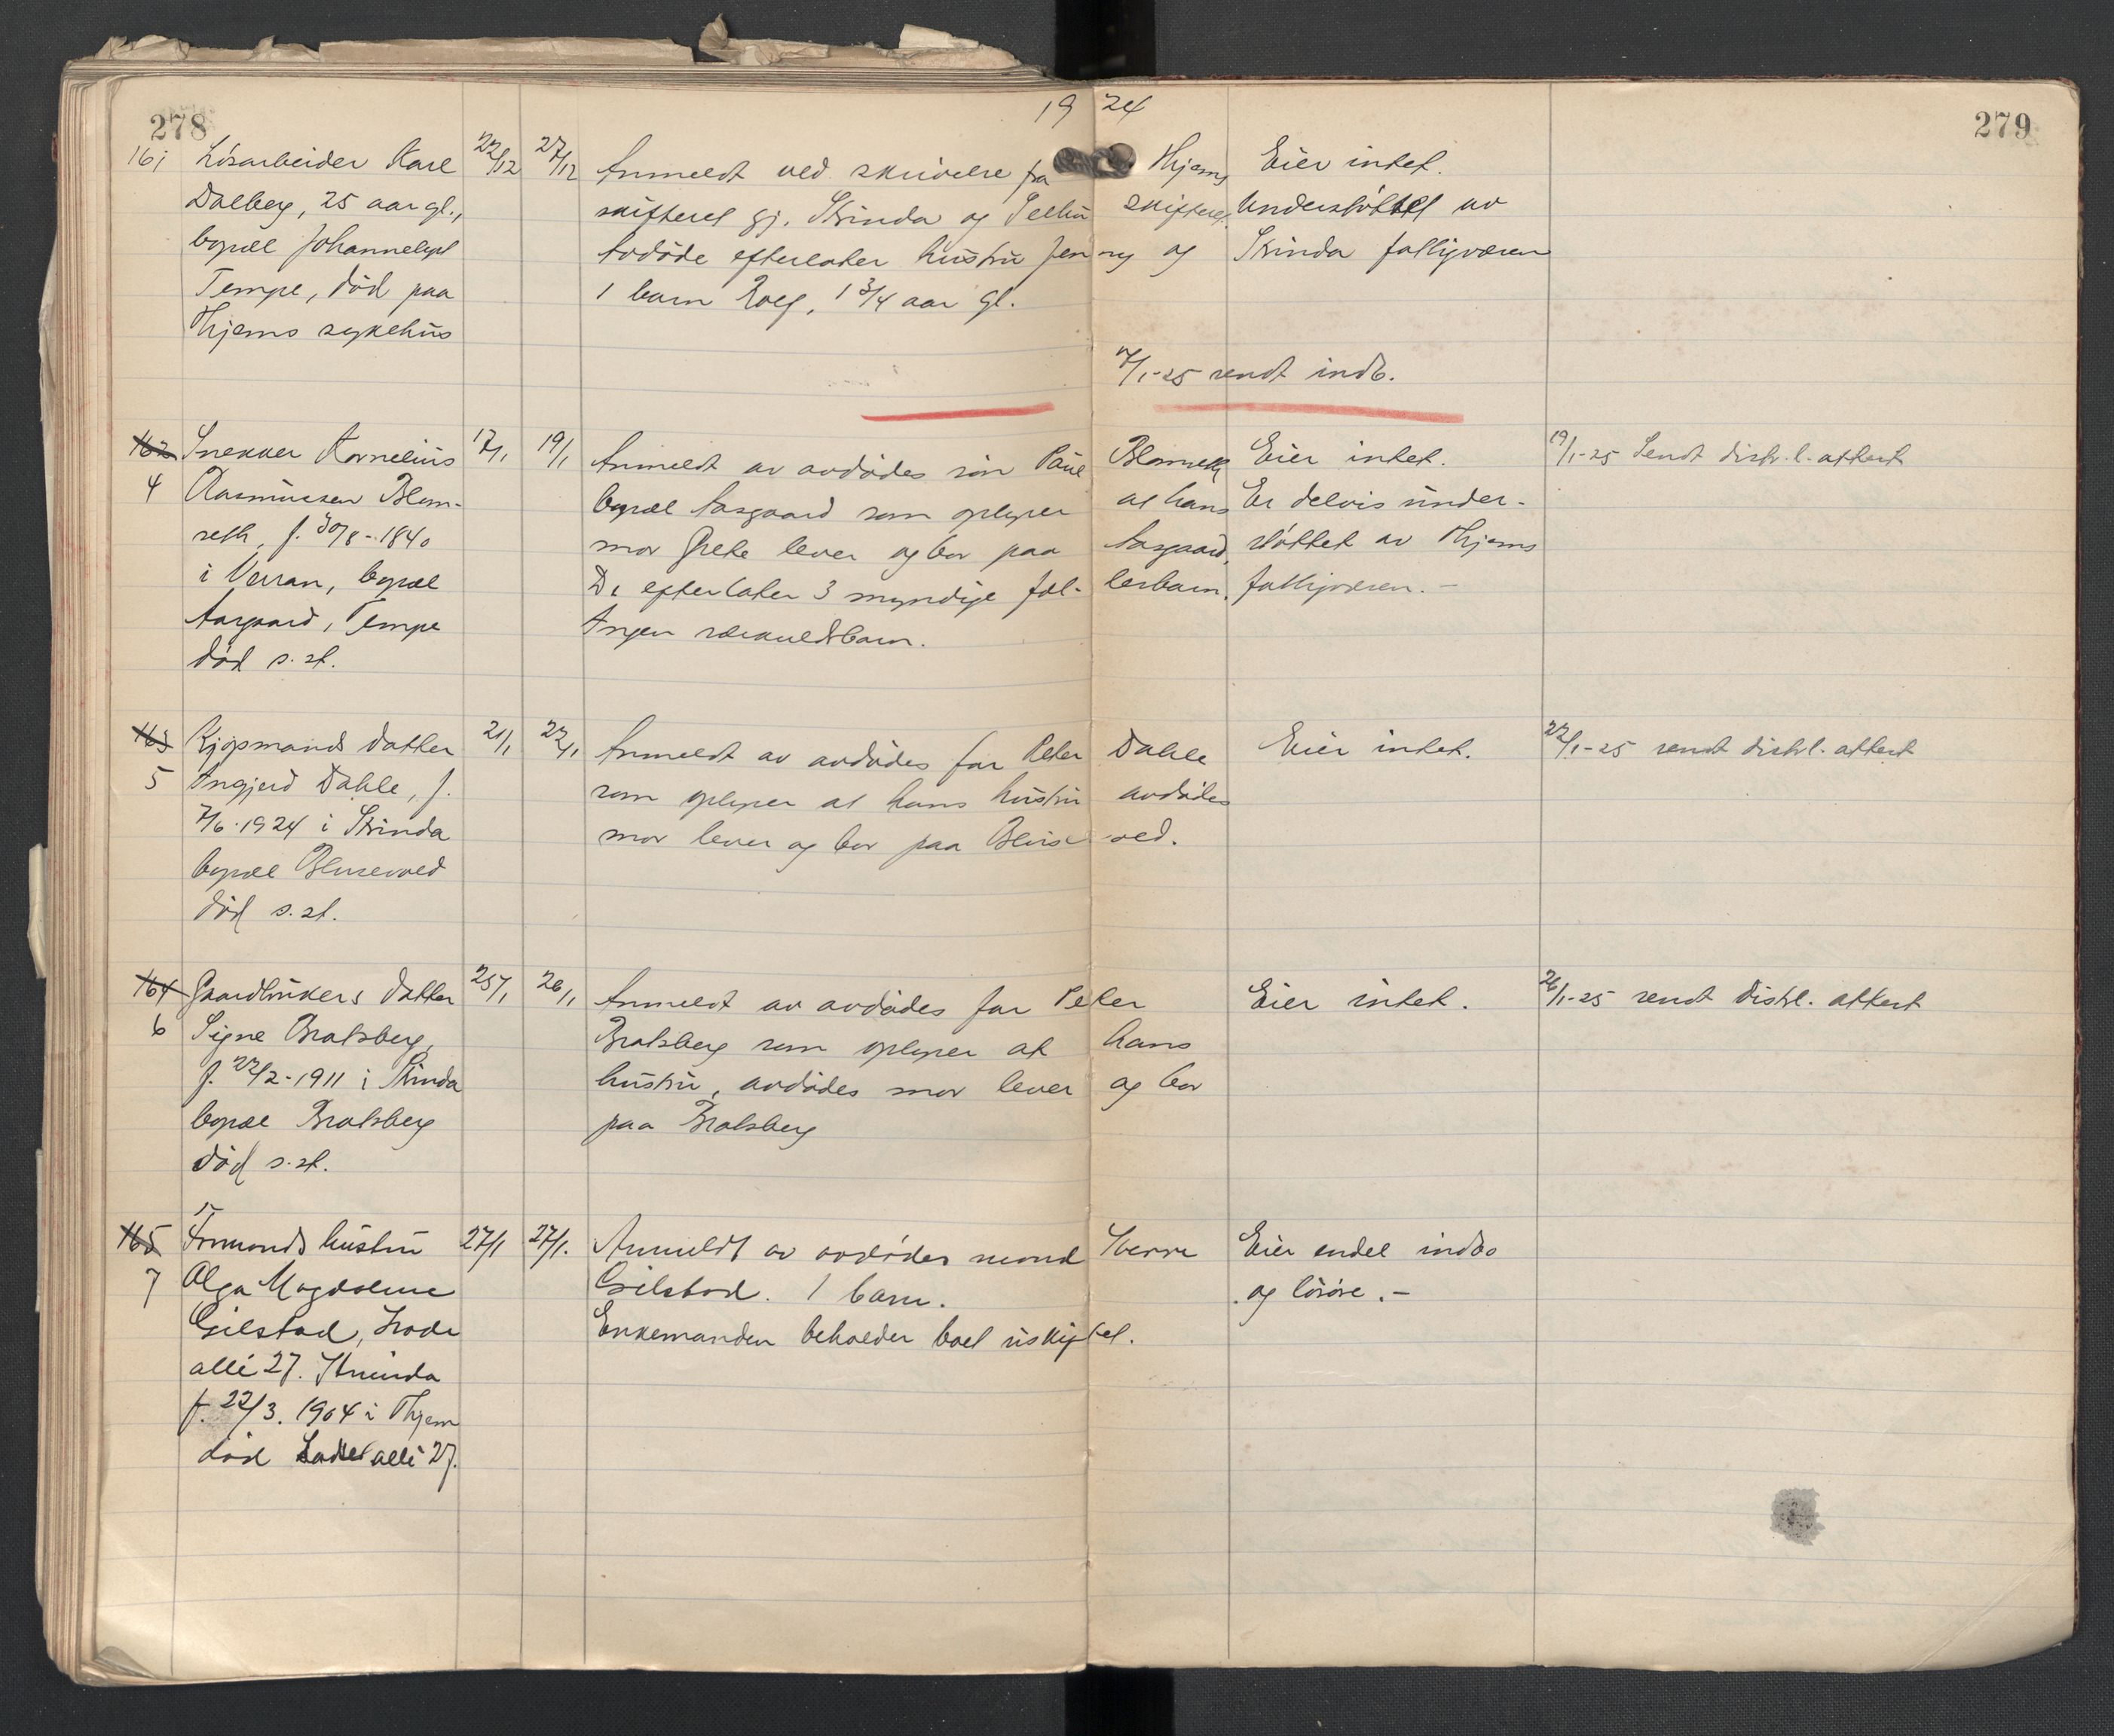 278
19 24
279
161 Løsarbeider Karl 22/12 27/12 Anmeldt ved skrivelse fra Thjems Eier intet.
Dalberg, 25 aar gl., skifteret gj. Strinda og Selbu skifteret. Understøttet av
bopæl Johanneslyst Avdøde efterlater hustru Jenny og Strinda fattigvæsen
Tempe, død paa 1 barn Rolf, 1 3/4 aar gl.
Thjems sykehus
7/1-25 sendt indb.
162 Snekker Kornelius 17/1 19/1 Anmeldt av avdødes søn Paul Blomseth Eier intet. 19/1-25 Sendt distr.l. attest
4 Rasmussen Blom- bopæl Aasgaard som oplyser at hans Er delvis under-
seth, f. 30/8-1840 mor Grete lever og bor paa Aasgaard, støttet av Thjems
i Verran, bopæl De efterlater 3 myndige fæl- lesbarn. fattigvæsen.-
Aasgaard, Tempe Ingen særkuldsbarn.
død s. st.
163 Kjøpmands datter 21/1 22/1 Anmeldt av avdødes far Peter Dahle Eier intet. 22/1-25 sendt distrl. attest
5 Ingjerd Dahle, f. som oplyser at hans hustru avdødes
7/6-1924 i Strinda mor lever og bor paa Bluse vold.
bopæl Blusevold
død s. st.
164 Gaardbrukers datter 25/1 26/1 Anmeldt av avdødes far Peter Eier intet. 26/1-25 sendt distrl. attest
6 Signe Bratsberg, Bratsberg som oplyser at hans
f. 22/2-1911 i Strinda hustru, avdødes mor lever og bor
bopæl Bratsberg paa Bratsberg
død s. st.
165 Formands hustru 27/1 27/1. Anmeldt av avdødes mand Sverre Eier endel indbo
7 Olga Magdalene Gilstad. 1 barn. og løsøre.-
Gilstad, Lade Enkemanden beholder boet uskiftet.
allé 27. Strinda
f. 22/3. 1904 i Thjem
død Lade allé 27.